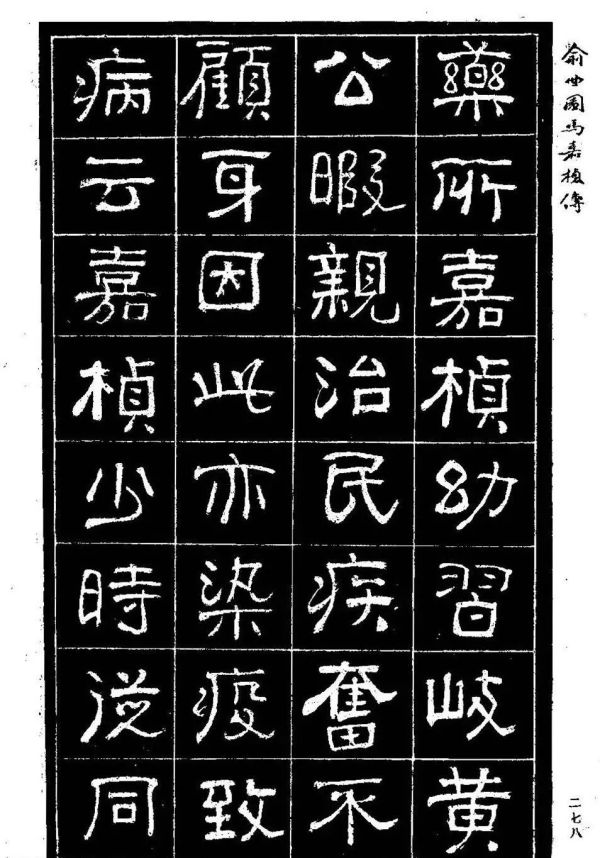 俞仲圂馬嘉楨傳
藥所嘉楨幼習岐黃
公暇親治民疾奮不
顧身因此亦染疫致
病云嘉楨少時從同
二七八